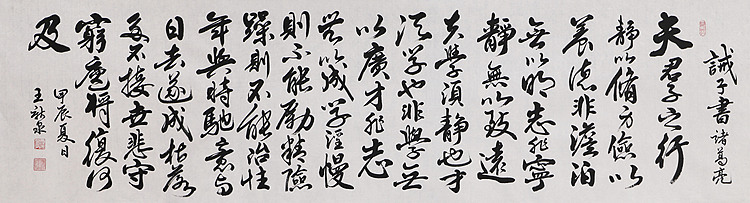 誡子書 諸葛亮
夫君子之行
靜以脩身儉以
養德非澹泊
無以明志非寧
靜無以致遠
夫學須靜也才
須学也非學無
以廣才非志
無以成学淫慢
則不能勵精險
躁則不能治性
年與時馳意与
日去遂成枯落
多不接世悲守
窮廬將復何
及
甲辰夏日
王 泉